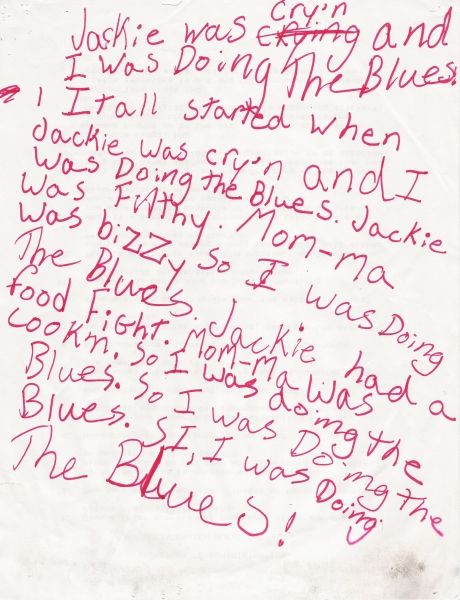 cry'n
Jackie was crying and
I was Doing The Blues.
1 Itall started when
Jackie was cry'n and I
was Doing the Blues. Jackie
was Filthy. Mom-ma
was bizzy so I was Doing
The Blues. Jackie had a
food Fight. Mom-ma was
cookn. So I was doimg the
Blues. So I was Doimg the
Blues. SI, I was Doing
The Blues!